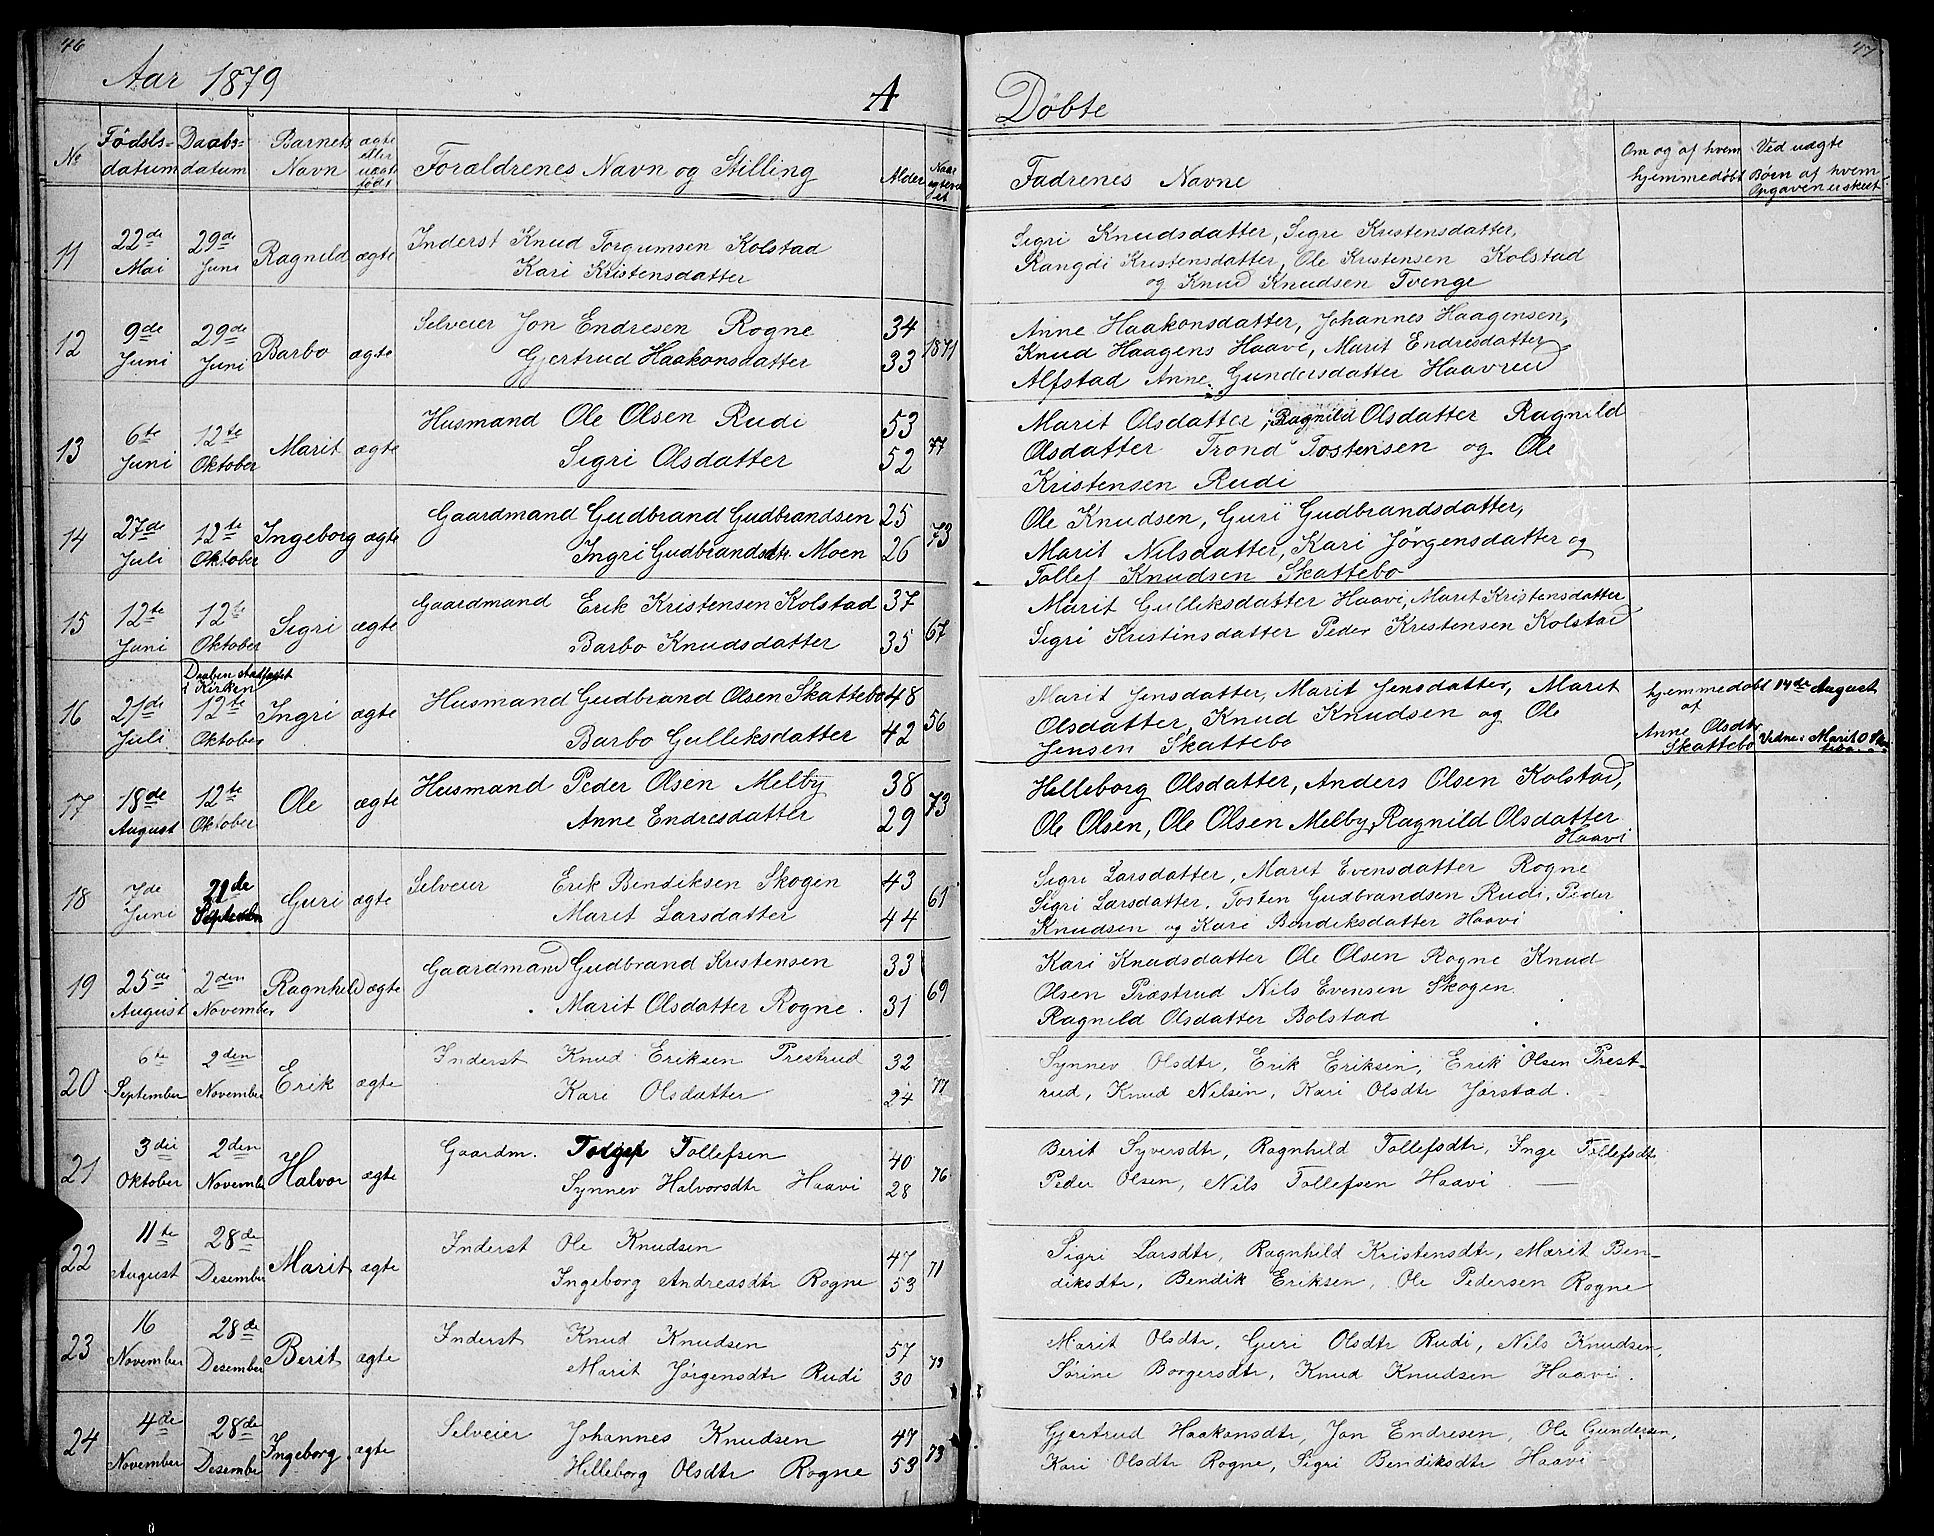 46
Aar 1879
A
№ Fødsls-datum Daabs-datum Barnets Navn ægte eller uægte født Foraldrenes Navn og Stilling Alder
11 22de Mai 29de Juni Ragnild ægte Inderst Knud Torgumsen Kolstad
Kari Kristensdatter
12 9de Juni 29de Juni Barbo ægte Selveier Jon Endresen Rogne 34
Gjertrud Haakonsdatter 33 1871
13 6te Juni 12te Oktober Marit ægte Husmand Ole Olsen Rudi 53
Sigri Olsdatter 52 77
14 27de Juli 12te Oktober Ingeborg ægte Gaardmand Gudbrand Gudbrandsen 25
Ingri Gudbrandsdtr. Moen 26 73
15 12te Juni 12te Oktober Sigri ægte Gaardmand Erik Kristensen Kolstad 37
Barbo Knudsdatter 35 67
Daaben stadfæst i Kirken
16 21de Juli 12te Oktober Ingri ægte Husmand Gudbrand Olsen Skattebo 48
Barbo Gulleksdatter 42 56
17 18de August 12te Oktober Ole ægte Husmand Peder Olsen Melby 38
Anne Endresdatter 29 73
18 7de Juni 21de Septemben Guri ægte Selveier Erik Bendiksen Skogen 43
Marit Larsdatter 44 61
19 25de August 2den November Ragnhild ægte Gaardmand Gudbrand Kristensen 33
Marit Olsdatter Rogne. 31 69
20 6te September 2den November Erik ægte Inderst Knud Eriksen Prestrud 32
Kari Olsdatter 24 77
21 3die Oktober 2den November Halvor ægte Gaardm. Tollefsen 40
Synnev Halvorsdtr Haavi 28 76
22 11te August 28de Desember Marit ægte Inderst Ole Knudsen 47
Ingeborg Andreasdtr Rogne 53 71
23 16 November 28de Desember Berit ægte Inderst Knud Knudsen 57
Marit Jørgensdtr Rudi 30
24 4de November 28de Desember Ingeborg ægte Selveier Johannes Knudsen 47
Helleborg Olsdtr Rogne 53 73
47
Døbte
Fadrenes Navne Om og af hvem hjemmedøbt Ved uægte Børn af hvem Opgaven er skeet
Sigri Knudsdatter, Sigri Kristensdatter,
Rangdi Kristensdatter, Ole Kristensen Kolstad
og Knud Knudsen Tvenge
Anne Haakonsdatter, Johannes Haagensen,
Knud Haagens Haavi, Marit Endresdatter
Alfstad Anne Gundersdatter Haavrud
Marit Olsdatter, Ragnild Olsdatter Ragnild
Olsdatter Trond Tostensen og Ole
Kristensen Rudi
Ole Knudsen, Guri Gudbrandsdatter,
Marit Nilsdatter, Kari Jørgensdatter og
Tollef Knudsen Skattebo
Marit Gulleksdatter Haavi, Marit Kristensdatter
Sigri Kristinsdatter Peder Kristensen Kolstad
Marit Jensdatter, Marit Jensdatter, Marit
Olsdatter, Knud Knudsen og Ole
Jensen Skattebo
hjemmedøbt 14de August
af
Anne Olsdtr
Skattebo Vidne: Marit O
Helleborg Olsdatter, Anders Olsen Kolstad,
Ole Olsen, Ole Olsen Melby, Ragnild Olsdatter
Haavi
Sigri Larsdatter, Marit Evensdatter Rogne
Sigri Larsdatter, Tosten Gudbrandsen Rudi, Peder
Knudsen og Kari Bendiksdatter Haavi
Kari Knudsdatter Ole Olsen Rogne Knud
Olsen Præstrud Nils Evensen Skogen
Ragnild Olsdatter Bolstad
Synnev Olsdtr, Erik Eriksen, Erik Olsen Prest-
rud, Knud Nilsen, Kari Olsdtr Jørstad.
Berit Syversdtr, Ragnhild Tollefsdtr, Inge Tollefsdtr,
Peder Olsen, Nils Tollefsen Haavi
Sigri Larsdtr, Ragnhild Kristensdtr, Marit Ben-
diksdtr, Bendik Eriksen, Ole Pedersen Rogne
Marit Olsdtr, Guri Olsdtr Rudi, Nils Knudsen,
Sørine Borgersdtr, Knud Knudsen Haavi.
Gjertrud Haakonsdtr, Jon Endresen, Ole Gundersen,
Kari Olsdtr Rogne, Sigri Bendiksdtr Haavi